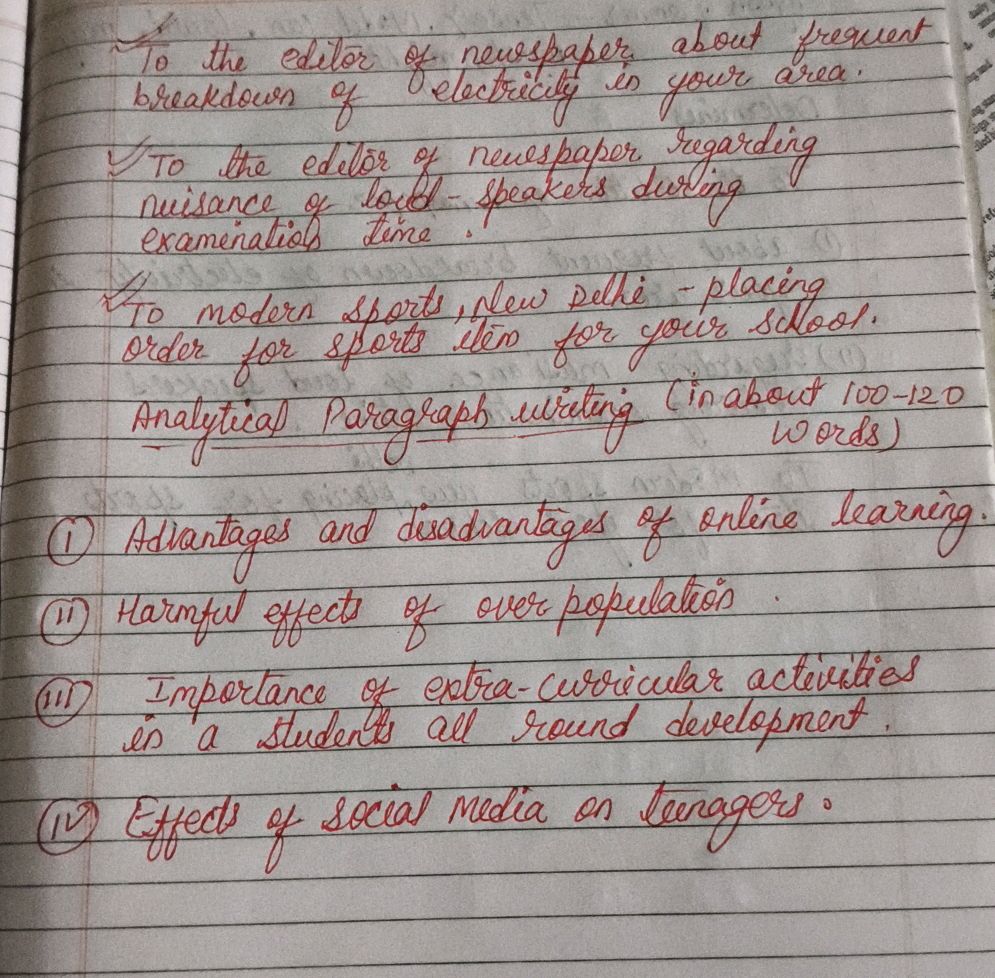 To the editor of newspaper about frequent
breakdown of electricity in your area.
To the editor of newspaper regarding
nuisance of loud-speakers during
examination time.
To modern sports, New Delhi - placing
order for sports item for your school.
Analytical Paragraph writing (in about 100-120
words)
(I) Advantages and disadvantages of online learning.
(II) Harmful effects of over population.
(III) Importance of extra-curricular activities
in a students all round development.
(IV) Effects of social media on teenagers.